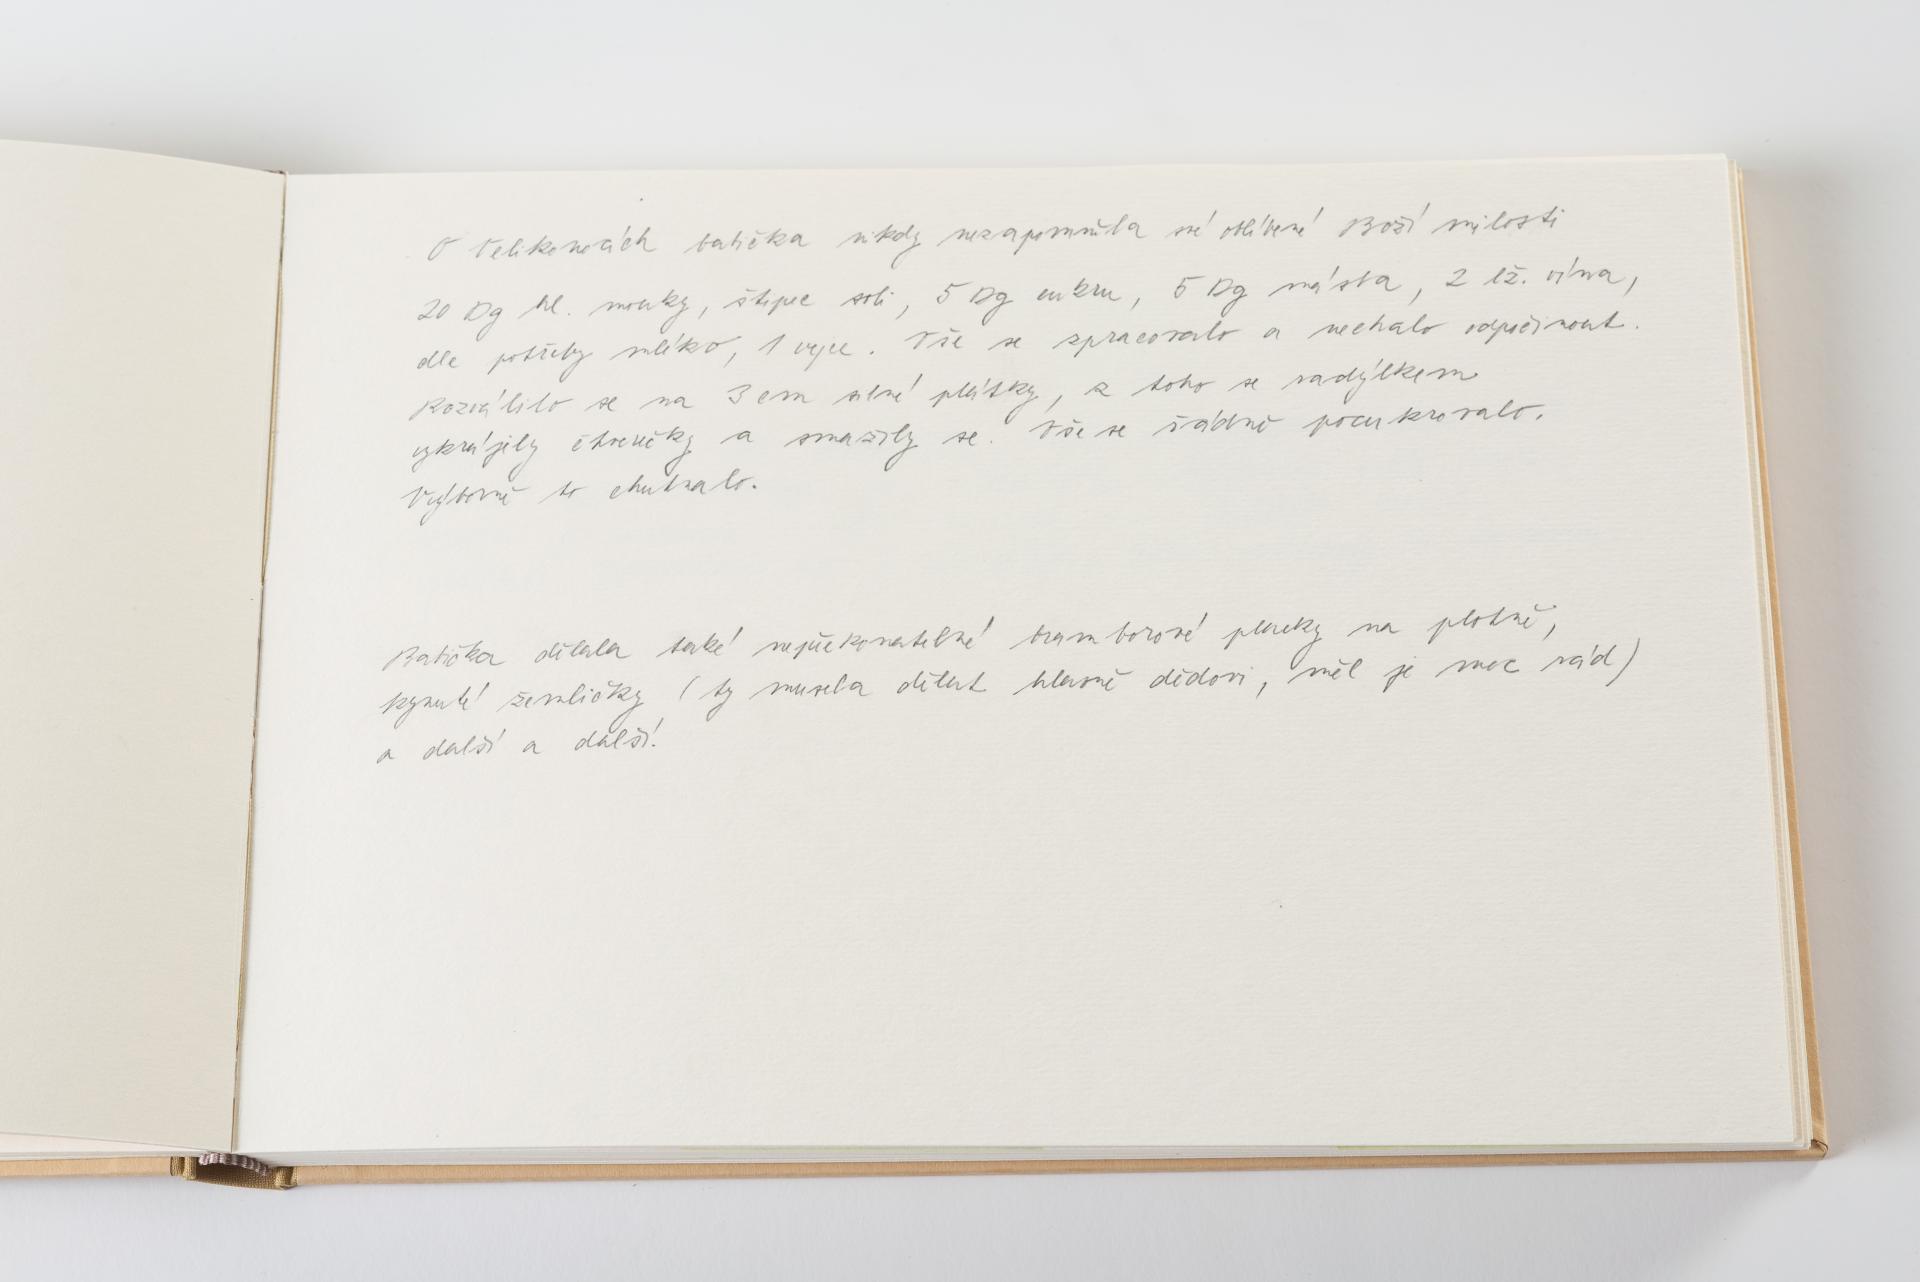 O Velikonocích babička nikdy nezapomněla své oblíbené Boží milosti
20 Dg hl. mouky, štipec soli, 5 Dg cukru, 5 Dg másla, 2 lž. vína,
dle potřeby mléko, 1 vejce. Vše se zpracovalo a nechalo odpočinout.
Rozválilo se na 3 cm silné plátky, z toho se radýlkem
vykrájely čtverečky a smažily se. Vše se řádně pocukrovalo.
Výborně to chutnalo.
Babička dělala také nepřekonatelné bramborové placky na plotně,
kynuté žemličky (ty musela dělat hlavně dědovi, měl je moc rád)
a další a další!